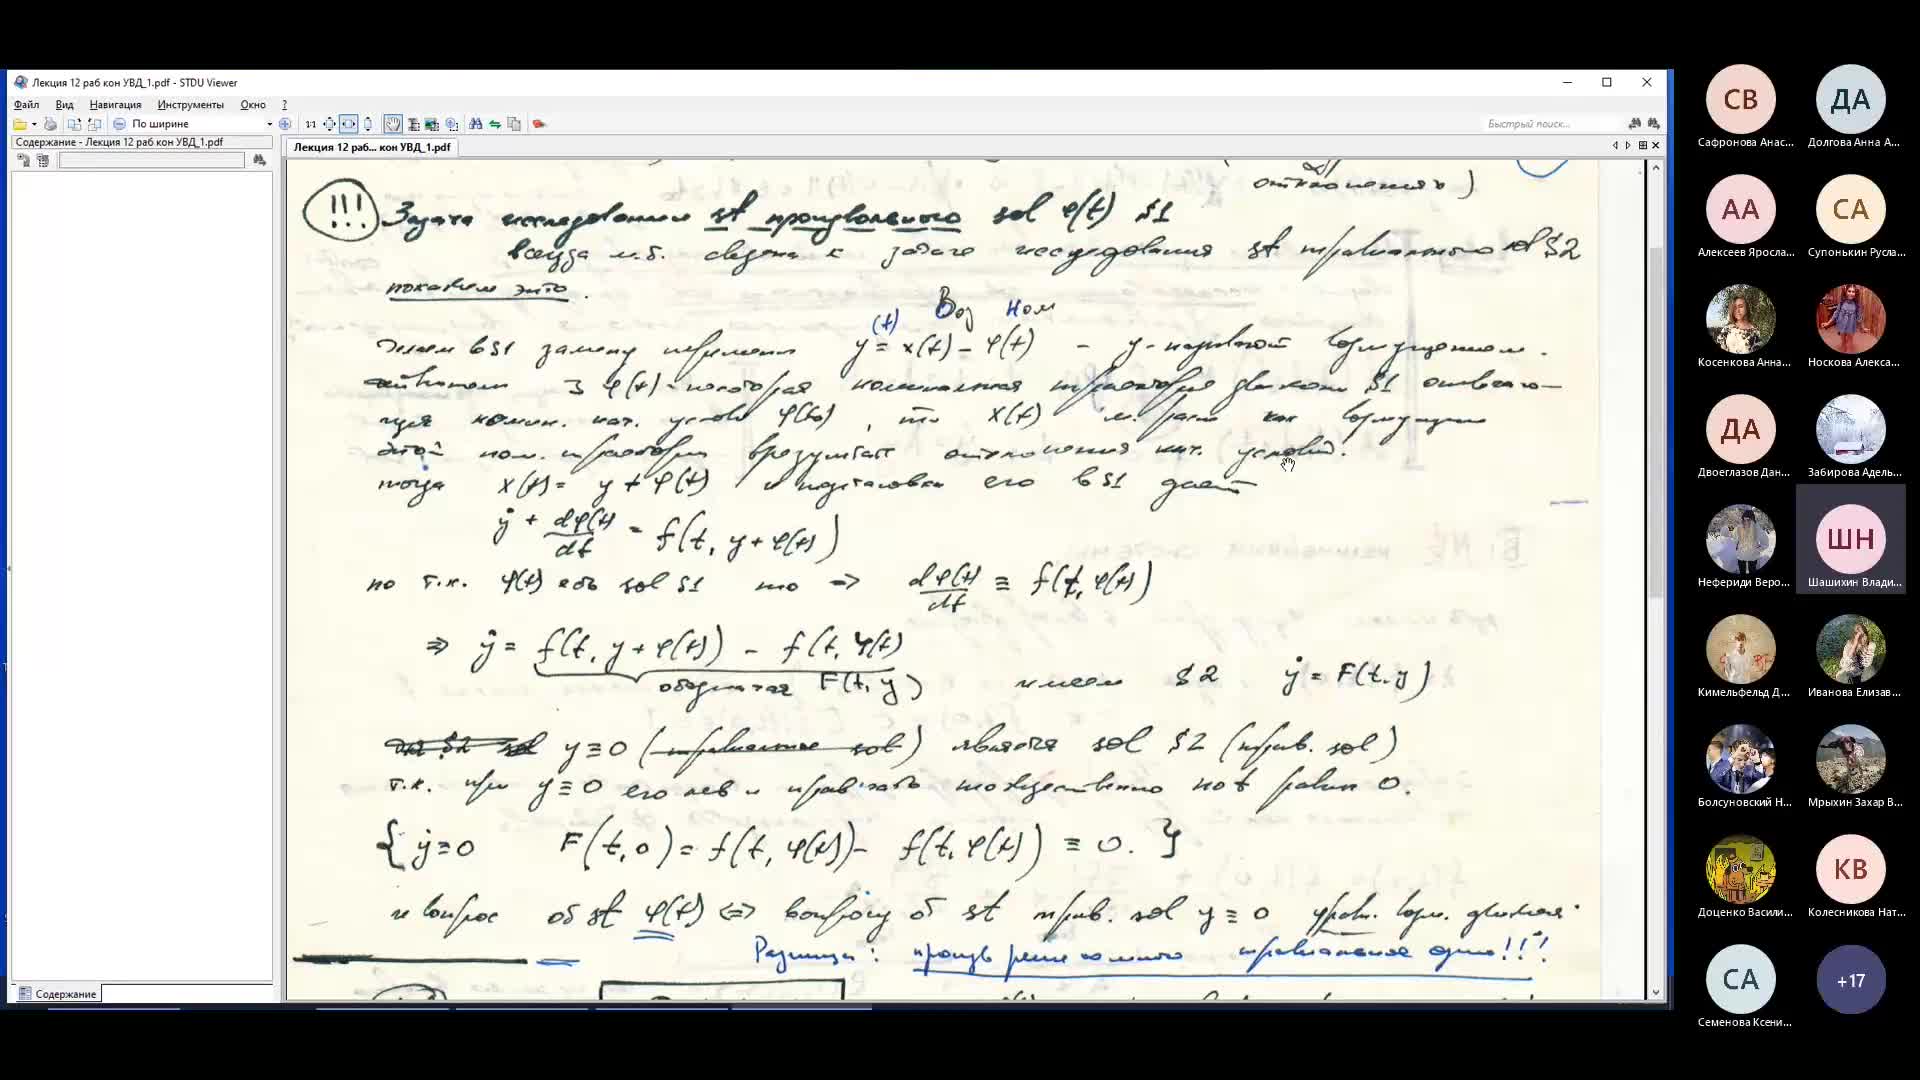 Лекция 12 раб кон УВД_1.pdf - STDU Viewer
Файл Вид Навигация Инструменты Окно ?
По ширине
1:1
Быстрый поиск...
Содержание - Лекция 12 раб кон УВД_1.pdf
Лекция 12 раб... кон УВД_1.pdf
отклонения)
!!! Задача исследования st произвольного sol φ(t) S1
всегда м.б. сведена к задаче исследования st тривиального sol S2
покажем это.
(t) Воз Ном
S1 замену y = x(t) - φ(t) - y -
φ(t) - некоторая номинальная траектория S1
номин. нач. услов φ(t₀), то x(t) м. расс как
этой ном. траектории отклонения нач. условий.
тогда x(t) = y + φ(t) и подстановка его в S1 дает
ẏ + dφ(t)/dt = f(t, y + φ(t))
но т.к. φ(t) есть sol S1 то ⇒ dφ(t)/dt ≡ f(t, φ(t))
⇒ ẏ = f(t, y + φ(t)) - f(t, φ(t))
обозначая F(t, y) имеем S2 ẏ = F(t, y)
y ≡ 0 (тривиальное sol) является sol S2 (трив. sol)
т.к. при y ≡ 0 его лев и прав часть тождественно по t равны 0.
{ ẏ ≡ 0 F(t, 0) = f(t, φ(t)) - f(t, φ(t)) ≡ 0. }
и вопрос об st φ(t) ⇔ вопросу об st трив. sol y ≡ 0 урав. возм. движения.
Разница: произв реш много тривиальное одно!!!
Содержание
СВ
Сафронова Анас...
ДА
Долгова Анна А...
АА
Алексеев Яросла...
СА
Супонькин Русла...
Косенкова Анна...
Носкова Алекса...
ДА
Двоеглазов Дан...
Забирова Адель...
Нефериди Веро...
ШН
Шашихин Влади...
Кимельфельд Д...
Иванова Елизав...
Болсуновский Н...
Мрыхин Захар В...
Доценко Васили...
КВ
Колесникова Нат...
СА
Семенова Ксени...
+17